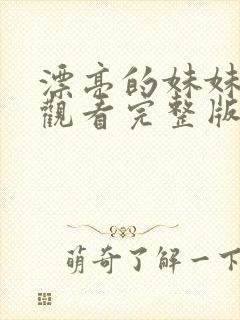 漂亮的妹妹
觀看完整版
萌奇了解一下